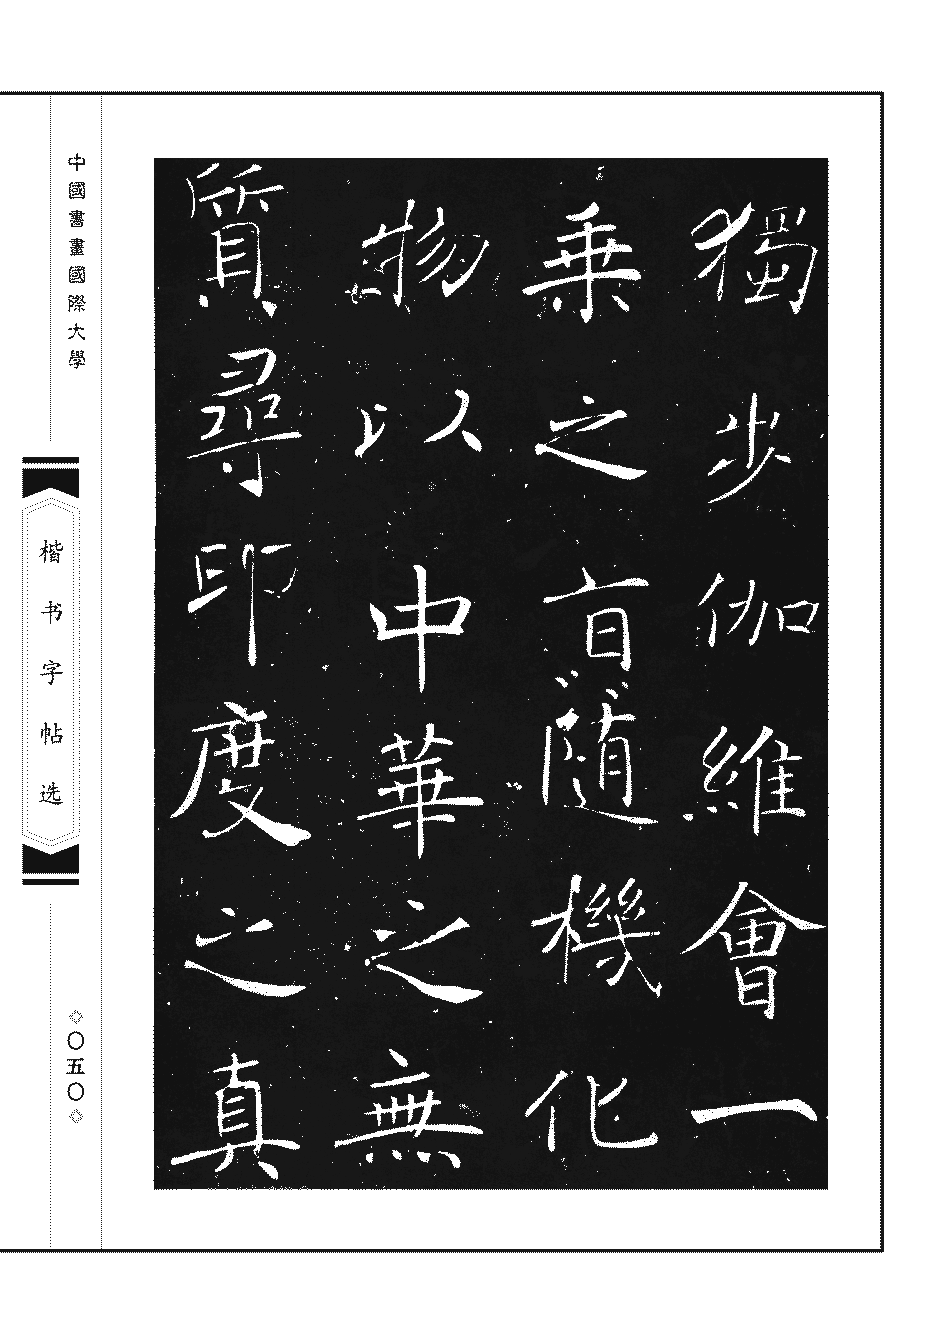 獨步伽維會一
乗之旨隨機化
物以中華之無
質尋印度之真
中國書畫國際大學
楷书字帖选
◇〇五〇◇